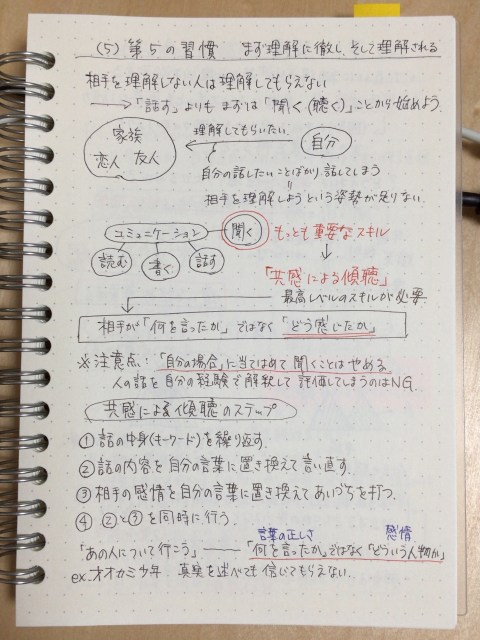 (5) 第5の習慣 まず理解に徹し、そして理解される
相手を理解しない人は理解してもらえない
→「話す」よりもまずは「聞く(聴く)」ことから始めよう。
家族
恋人 友人
理解してもらいたい
自分
自分の話したいことばかり話してしまう
||
相手を理解しようという姿勢が足りない
コミュニケーション
聞く
もっとも重要なスキル
読む
書く
話す
↓
「共感による傾聴」
最高レベルのスキルが必要
相手が「何を言ったか」ではなく「どう感じたか」
※注意点:「自分の場合」に当てはめて聞くことはやめる。
人の話を自分の経験で解釈して評価してしまうのはNG.
共感による傾聴のステップ
①話の中身(キーワード)を繰り返す。
②話の内容を自分の言葉に置き換えて言い直す。
③相手の感情を自分の言葉に置き換えてあいづちを打つ。
④ ②と③を同時に行う。
言葉の正しさ 感情
「あの人について行こう」――「何を言ったか」ではなく「どういう人物か」
ex. オオカミ少年 真実を述べても信じてもらえない.